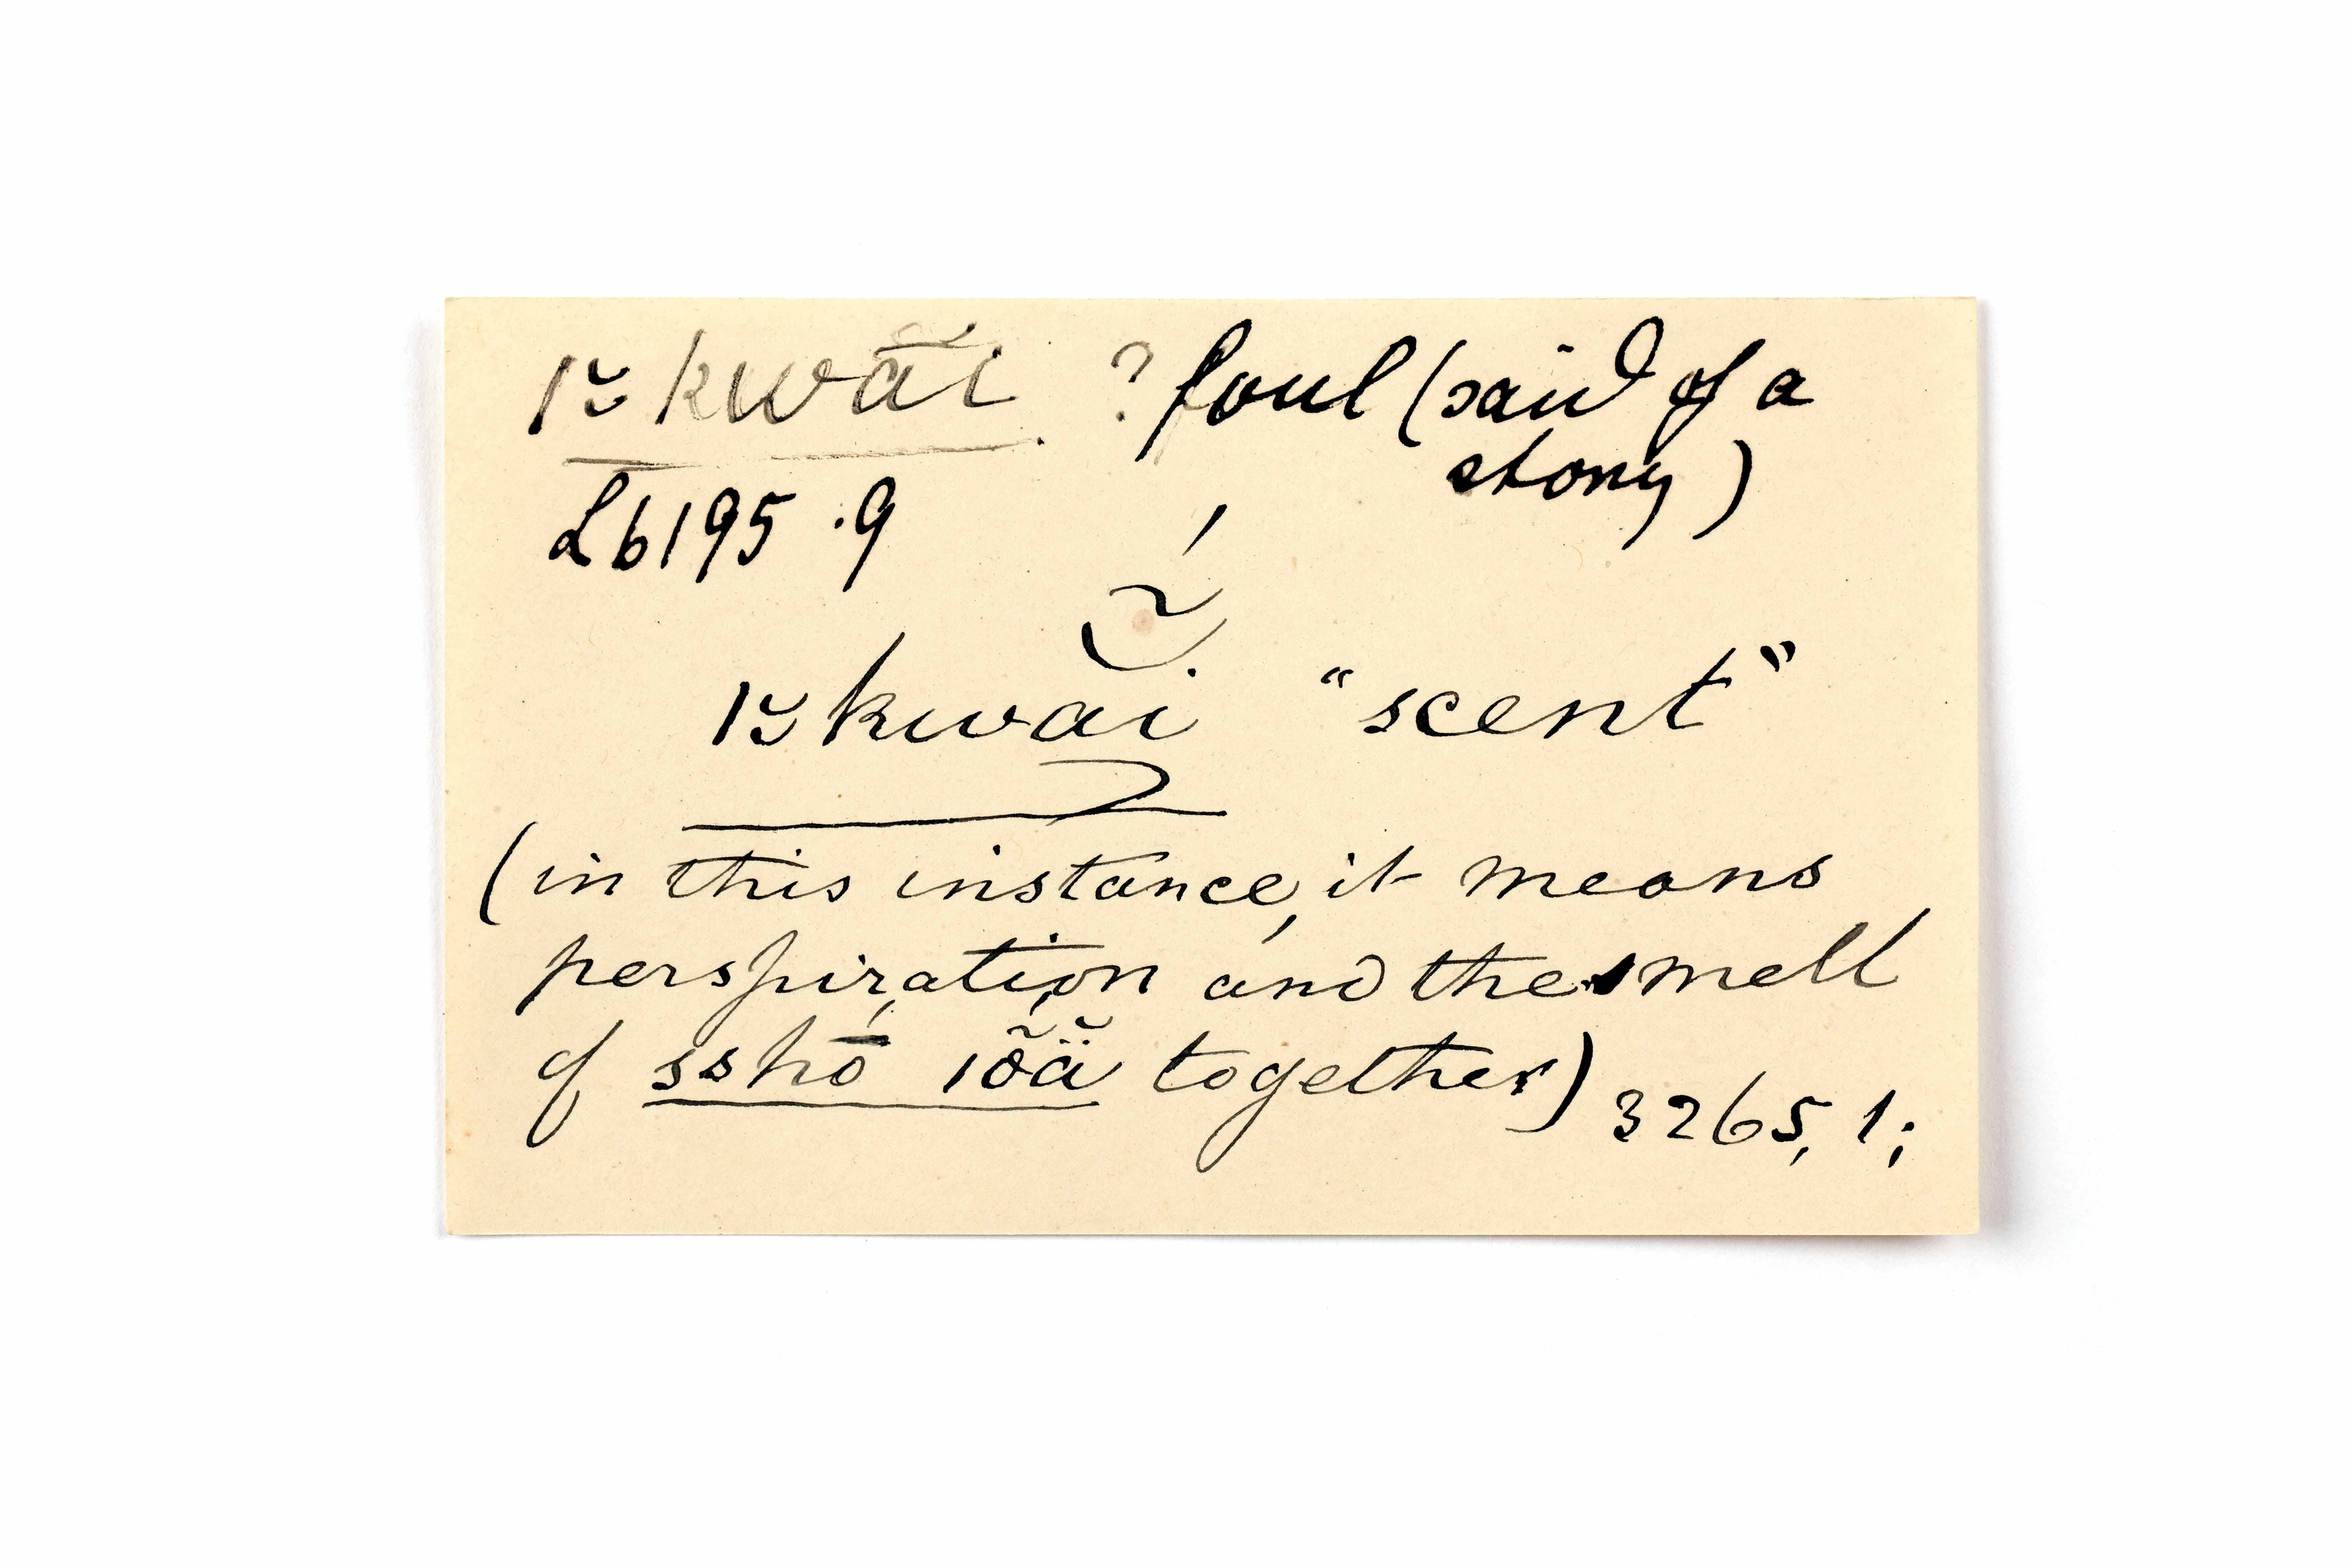 ı̆ kwā̆i ? foul (said of a
story)
L b 195 . 9
ı̆ kwăi "scent"
(in this instance, it means
perspiration and the smell
of sshō ıõä̆ together) 3265, 1;